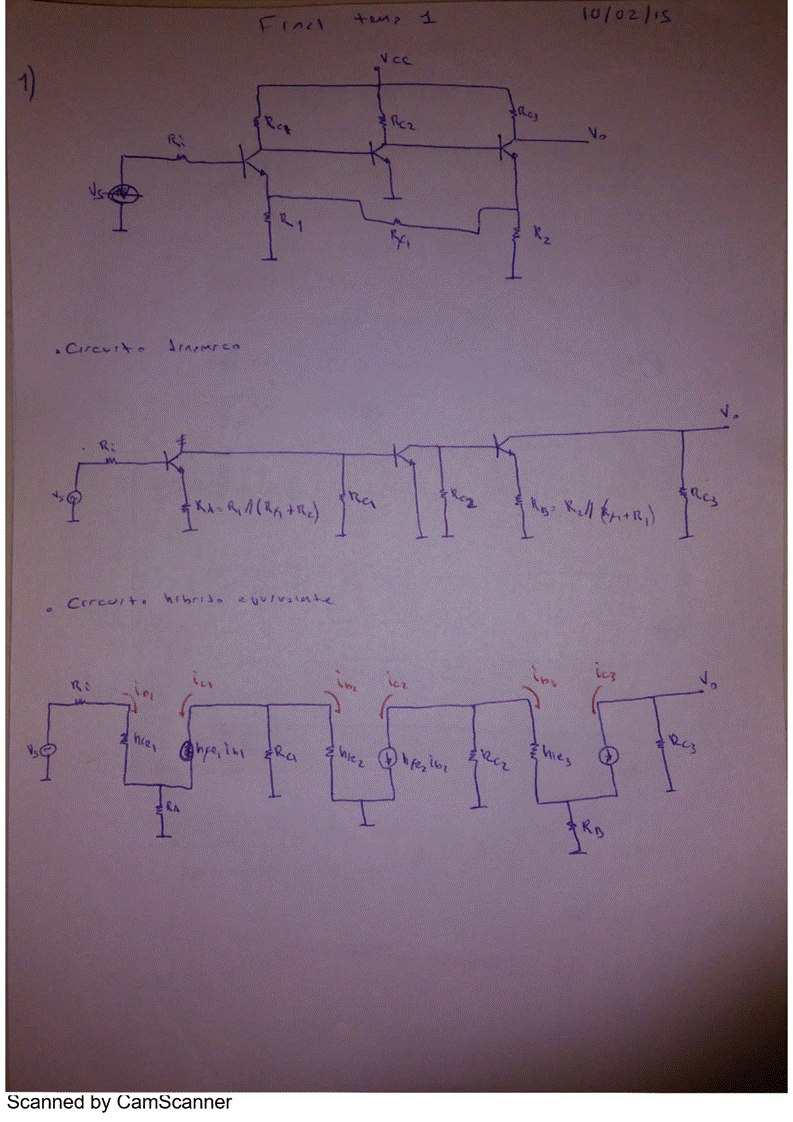 Final tema 1 10/02/15
1)
Vcc
Rc1 Rc2 Rc3
Ri Vo
Vs
R1 Rf1 R2
. Circuito dinamico
Vo
Ri
Vs RA = R1 // (Rf1 + R2) Rc1 Rc2 RB = R2 // (Rf1 + R1) Rc3
. Circuito hibrido equivalente
Ri ib1 ic1 ib2 ic2 ib3 ic3 Vo
Vs hie1 hfe1 ib1 Rc1 hie2 hfe2 ib2 Rc2 hie3 Rc3
RA RB
Scanned by CamScanner